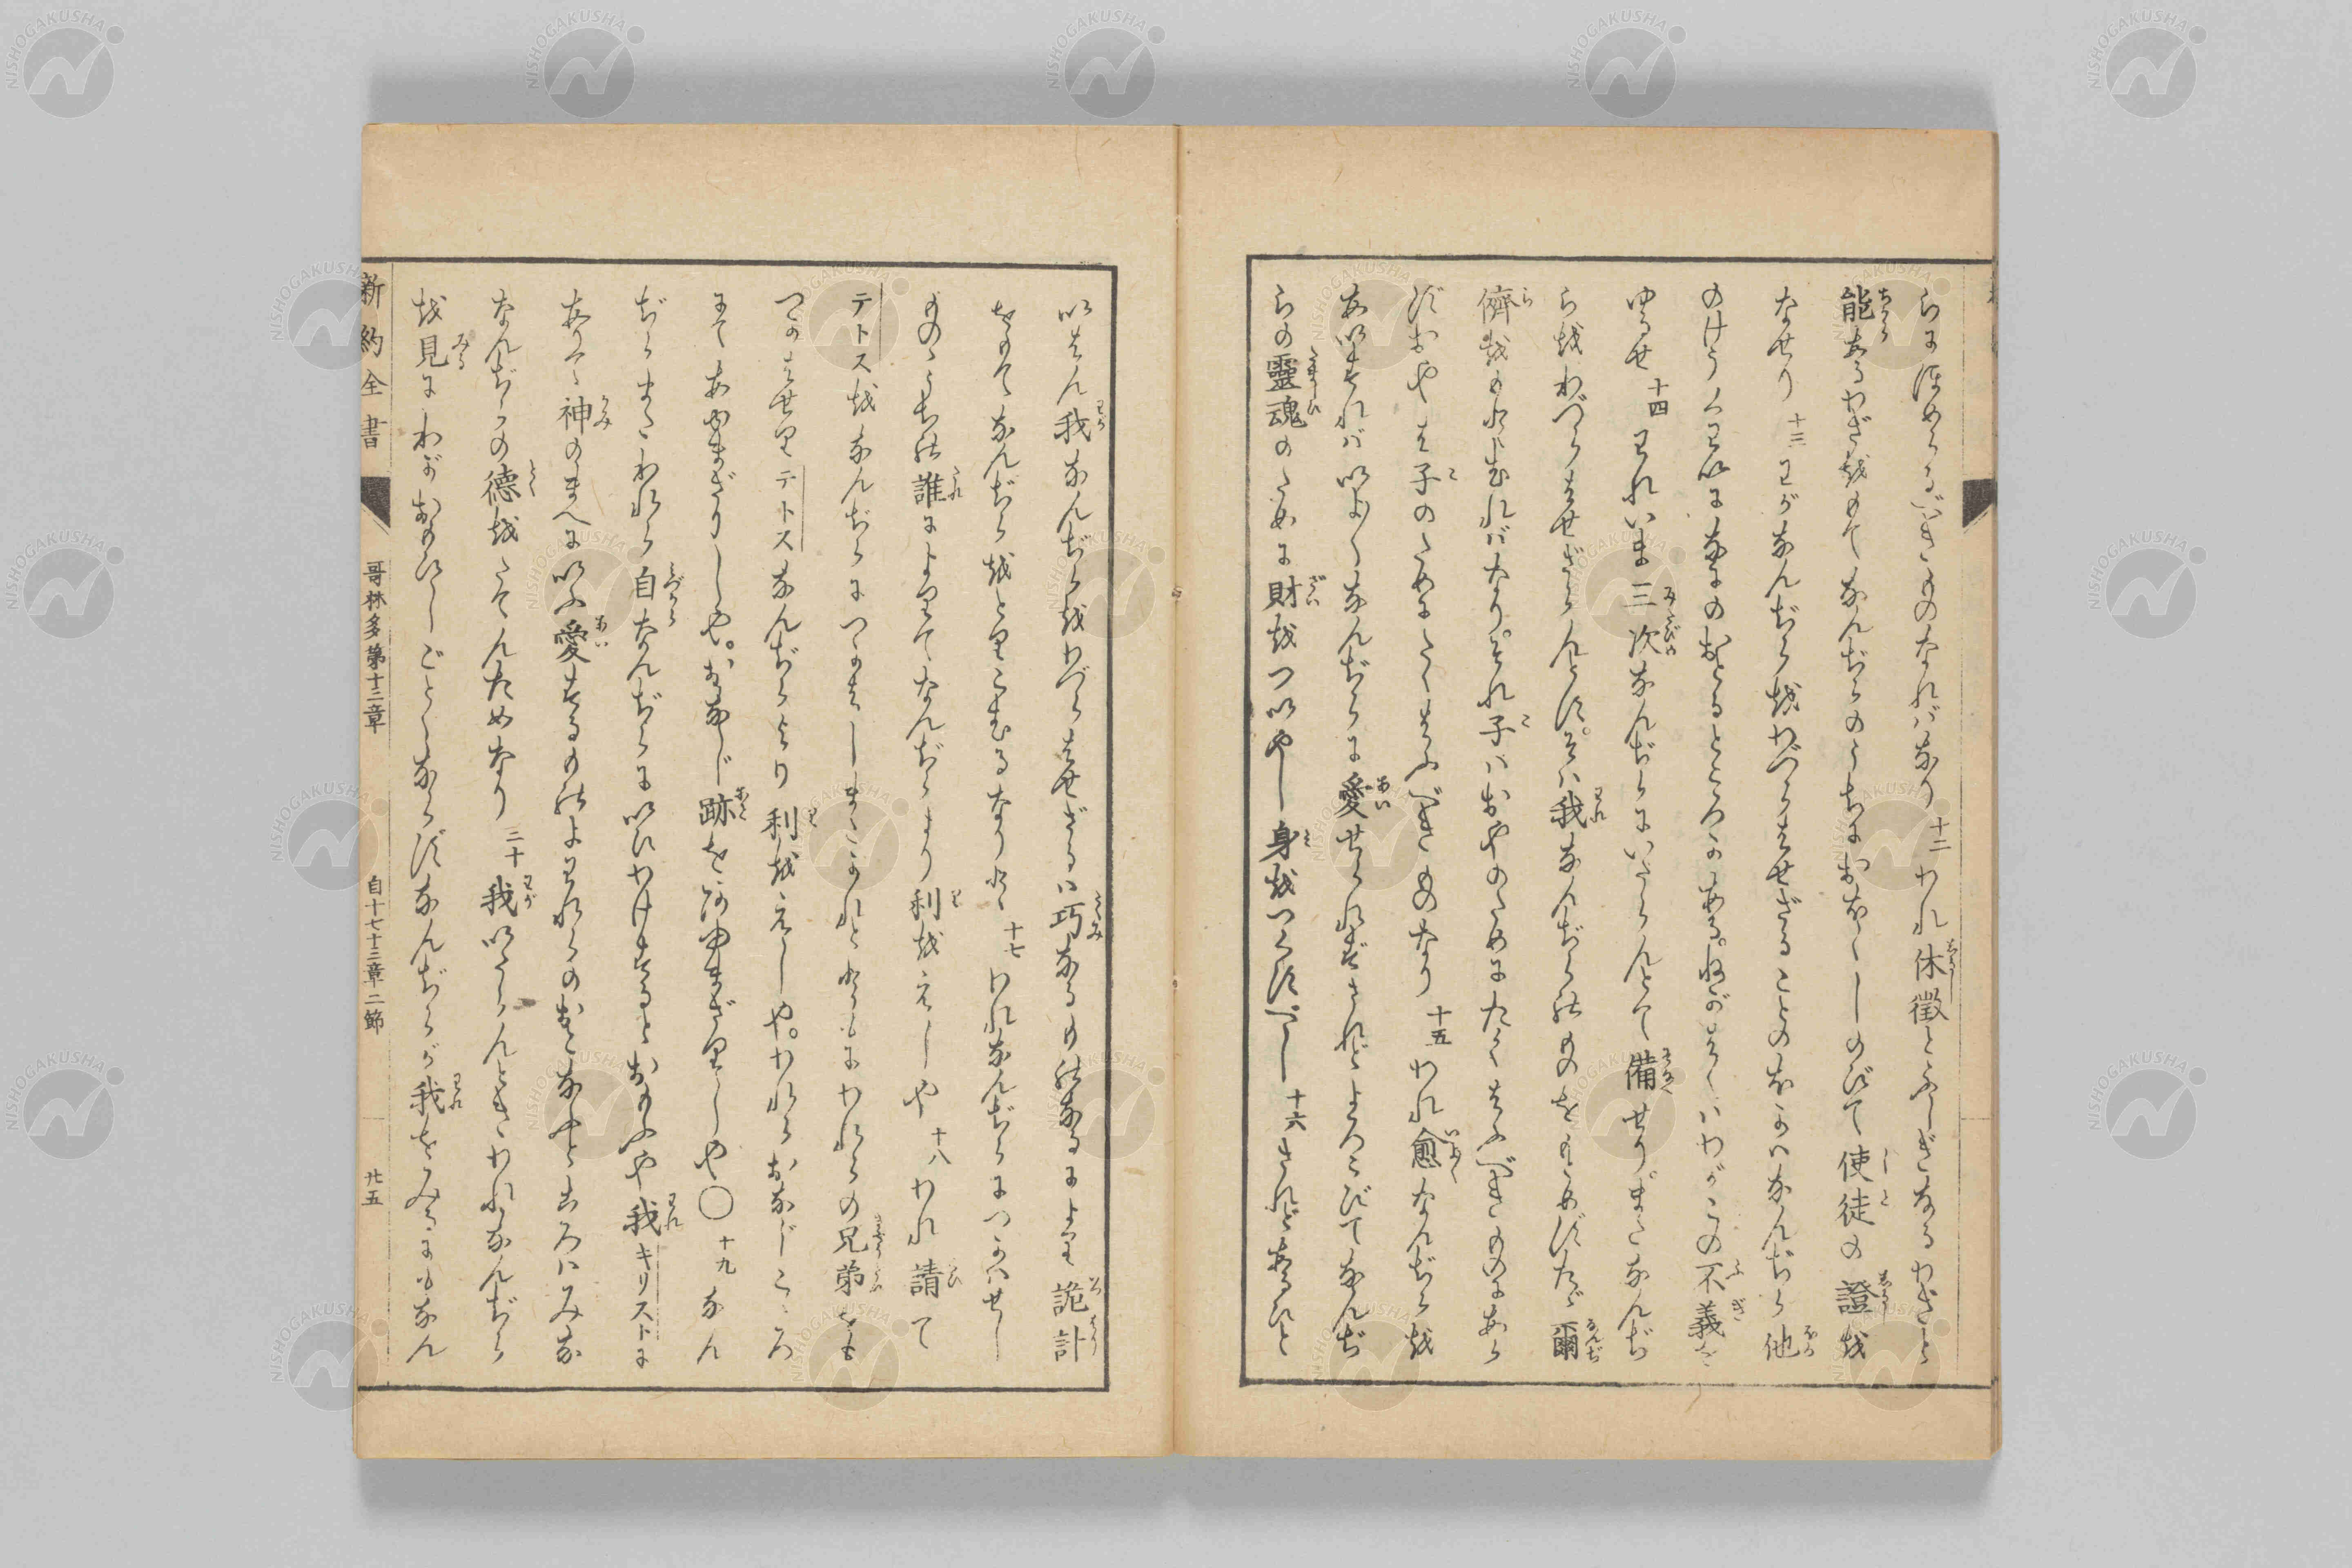 らにほめらるべきものなればなり 十二 われ休徴とふしぎなるわざと
能あるわざをもてなんぢらのうちにおほくしのびて使徒の證を
なせり 十三 わがなんぢらをわづらはせざることのほかはなんぢら他
のけうくわいになにのおとるところかある。ねがはくはわがこの不義を
ゆるせ 十四 われいま三次なんぢらにいたらんとて備せり。またなんぢ
らをわづらはせざらんとす。そは我なんぢらのものをもとめずたゞ爾
儕をもとむればなり。それ子はおやのためにたくはふべきものにあら
ずおやは子のためにたくはふべきものなり 十五 われ愈なんぢらを
あいすればいよ〳〵なんぢらに愛せられずされどよろこびてなんぢ
らの靈魂のために財をつひやし身をつくすべし 十六 されどあるひと
いはん我なんぢらをわづらはせざるは巧なるもの なるにより詭計
をもてなんぢらをとりこむるなりと 十七 われなんぢらにつかはせし
もののうちの誰によりてなんぢらより利をえしや 十八 われ請て
テトスをなんぢらにつかはしまたかれとともにわれらの兄弟をも
つかはせりテトスなんぢらより利をえしや。われらおなじこゝろ
にてあゆまざりしや。おなじ跡をあゆまざりしや〇 十九 なん
ぢらまたわれら自なんぢらにいひわけするとおもふや我キリストに
ありて神のまへにいふ愛するものよわれらのおこなふところはみな
なんぢらの德をたてんためなり 二十 我いたらんときわれなんぢら
を見にわがおもひしごとくならずなんぢらが我をみるにもなん
新約全書 哥林多第十三章 自十七十三章二節 廿五
NISHOGAKUSHA